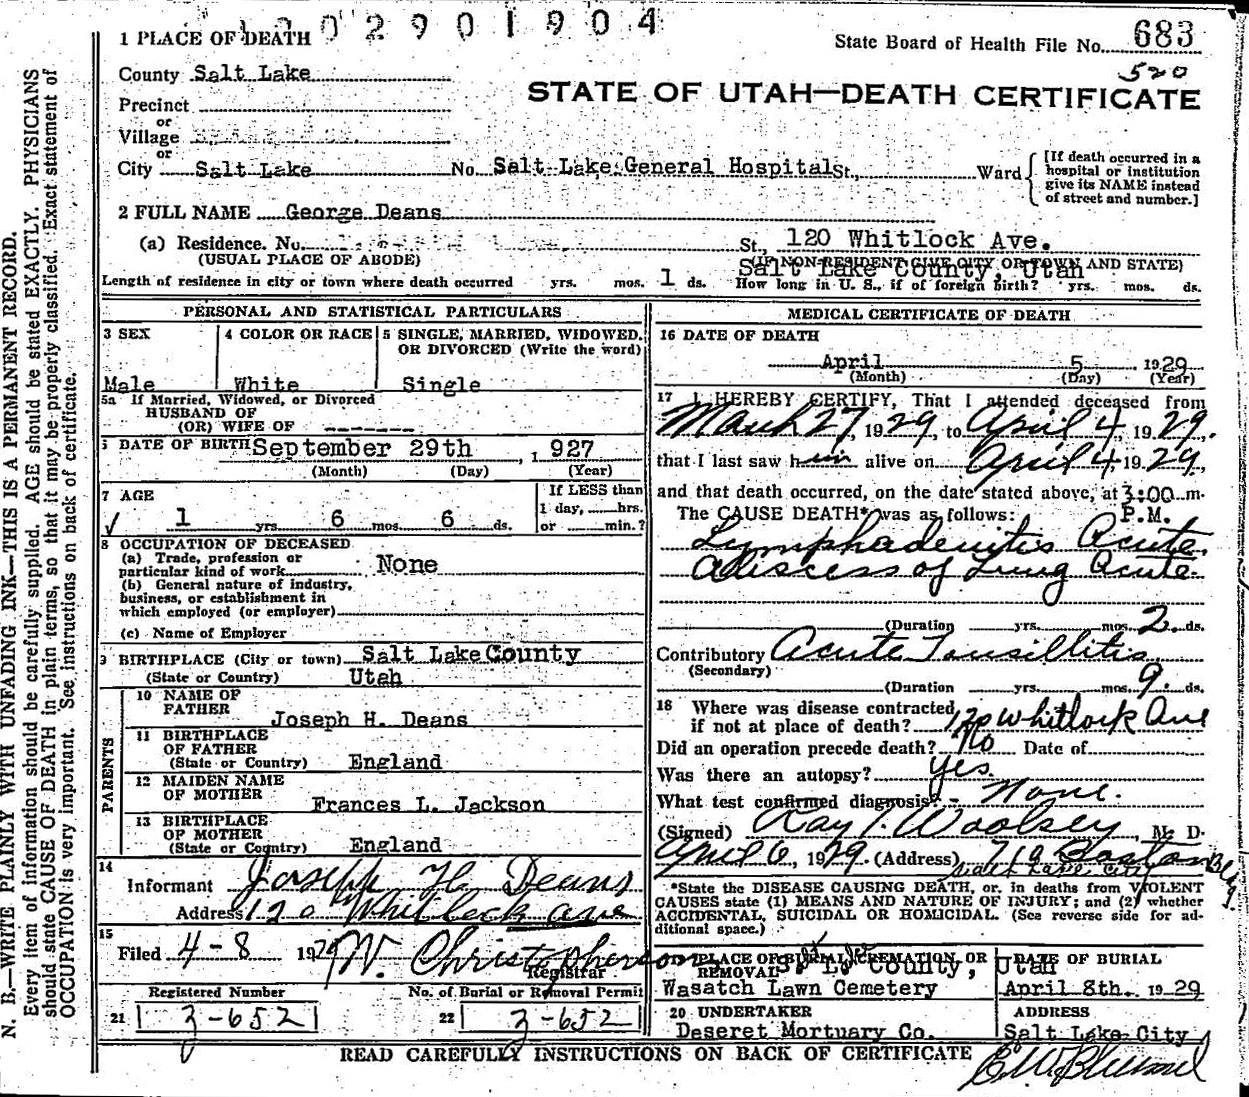 2 0 2 9 0 1 9 0 4
1 PLACE OF DEATH
State Board of Health File No. 683
520
County Salt Lake
STATE OF UTAH—DEATH CERTIFICATE
Precinct
or
Village
or
City Salt Lake No. Salt Lake General Hospital St., Ward
[If death occurred in a
hospital or institution
give its NAME instead
of street and number.]
2 FULL NAME George Deans
(a) Residence. No. St., 120 Whitlock Ave.
(USUAL PLACE OF ABODE) (IF NON-RESIDENT GIVE CITY OR TOWN AND STATE)
Salt Lake County, Utah
Length of residence in city or town where death occurred yrs. mos. 1 ds. How long in U. S., if of foreign birth? yrs. mos. ds.
PERSONAL AND STATISTICAL PARTICULARS
3 SEX 4 COLOR OR RACE 5 SINGLE, MARRIED, WIDOWED,
OR DIVORCED (Write the word)
Male White Single
5a If Married, Widowed, or Divorced
HUSBAND OF
(OR) WIFE OF -------
6 DATE OF BIRTH September 29th , 1 927
(Month) (Day) (Year)
7 AGE If LESS than
1 yrs. 6 mos. 6 ds. 1 day, hrs.
or min.?
8 OCCUPATION OF DECEASED
(a) Trade, profession or
particular kind of work None
(b) General nature of industry,
business, or establishment in
which employed (or employer)
(c) Name of Employer
9 BIRTHPLACE (City or town) Salt Lake County
(State or Country) Utah
PARENTS
10 NAME OF
FATHER
Joseph H. Deans
11 BIRTHPLACE
OF FATHER
(State or Country) England
12 MAIDEN NAME
OF MOTHER
Frances L. Jackson
13 BIRTHPLACE
OF MOTHER
(State or Country) England
14
Informant Joseph H. Deans
Address 120 Whitlock ave
15
Filed 4-8 1929 W. Christopherson
Registrar
Registered Number No. of Burial or Removal Permit
21 3-652 22 3-652
MEDICAL CERTIFICATE OF DEATH
16 DATE OF DEATH
April 5 1929
(Month) (Day) (Year)
17 I HEREBY CERTIFY, That I attended deceased from
March 27, 1929, to April 4, 1929.
that I last saw him alive on April 4, 1929,
and that death occurred, on the date stated above, at 3:00 m.
The CAUSE DEATH* was as follows: P.M.
Lymphadenitis Acute.
Abscess of Lung Acute.
(Duration yrs. mos. 2 ds.
Contributory Acute Tonsillitis
(Secondary)
(Duration yrs. mos. 9. ds.
18 Where was disease contracted
if not at place of death? 120 Whitlock Ave
Did an operation precede death? No Date of
Was there an autopsy? yes.
What test confirmed diagnosis? - None.
(Signed) Ray T. Woolsey, M. D.
April 6, 1929. (Address) 719 Boston Bldg.
Salt Lake City
*State the DISEASE CAUSING DEATH, or, in deaths from VIOLENT
CAUSES state (1) MEANS AND NATURE OF INJURY; and (2) whether
ACCIDENTAL, SUICIDAL OR HOMICIDAL. (See reverse side for ad-
ditional space.)
PLACE OF BURIAL, CREMATION, OR DATE OF BURIAL
REMOVAL S. L. County, Utah
Wasatch Lawn Cemetery April 8th. 1929
20 UNDERTAKER ADDRESS
Deseret Mortuary Co. Salt Lake City
READ CAREFULLY INSTRUCTIONS ON BACK OF CERTIFICATE
N. B.—WRITE PLAINLY WITH UNFADING INK—THIS IS A PERMANENT RECORD.
Every item of information should be carefully supplied. AGE should be stated EXACTLY. PHYSICIANS
should state CAUSE OF DEATH in plain terms, so that it may be properly classified. Exact statement of
OCCUPATION is very important. See instructions on back of certificate.